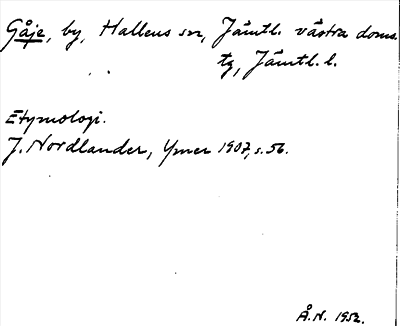 Gåje, by, Hallens sn, Jämtl. västra doms.
tg, Jämtl. l.
Etymologi.
J. Nordlander, Ymer 1907, s. 56.
Å.N. 1952.